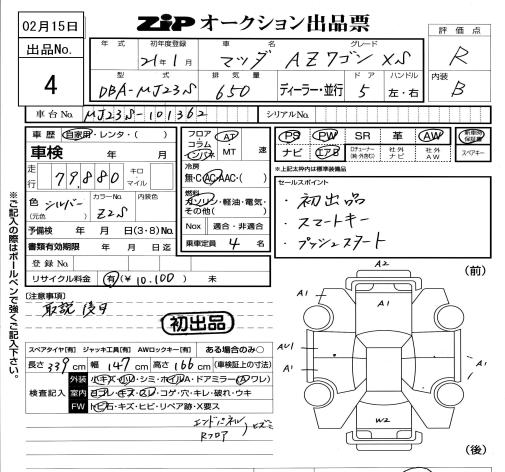 02月15日
ZIP オークション出品票
出品No.
4
評価点
R
内装
B
年式 初年度登録 車名 グレード
21年1月 マツダ AZワゴン XS
型式 排気量 ディーラー・並行 ドア ハンドル
DBA-MJ23S 650 5 左・右
車台No. MJ23S-101362 シリアルNo.
車歴 自家用・レンタ・( )
車検 年 月
走行 79,880 キロ マイル
色 シルバー カラーNo. Z2S 内装色
(元色)
予備検 年 月 日(3・8)No.
書類有効期限 年 月 日迄
登録No.
リサイクル料金 有(¥10,100)
フロア・コラム インパネ AT・MT 速
冷房
無・C・AC・AAC・( )
燃料
ガソリン・軽油・電気・その他( )
Nox 適合・非適合
乗車定員 4 名
PS PW SR 革 AW 新車時保証書
ナビ エアB Dチューナー(純・外取り) 社外ナビ 社外AW スペアキー
*上記太枠内は標準装備品
セールスポイント
・初出品
・スマートキー
・プッシュスタート
※ご記入の際はボールペンで強くご記入下さい。
[注意事項]
取説後日
初出品
スペアタイヤ[有] ジャッキ工具[有] AWロックキー[有] ある場合のみ○
長さ 339 cm 幅 147 cm 高さ 166 cm (車検証上の寸法)
検査記入
外装 小キズ・凹ル・シミ・ホイルA・ドアミラー(A・ワレ)
室内 ヨゴレ・キズ・スレ・コゲ・穴・キレ・破れ・ウキ
FW トビ石・キズ・ヒビ・リペア跡・X要ス
エンドパネル
Rフロア
)ヒズミ
(前)
A2
A1
A1
A1
AU1
A1
A1
W2
(後)